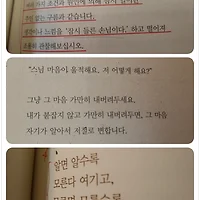 없는 구름과 같습니다.
느낌을 '잠시 들른 손님이다.' 하고 떨어져
관찰해보십시오.
"스님 마음이 울적해요. 저 어떻게 해요?"
그냥 그 마음 가만히 내버려두세요.
내가 붙잡지 않고 가만히 내버려두면, 그 마음
자기가 알아서 저절로 변합니다.
알면 알수록
모른다 여기고,
모르면 모를수록